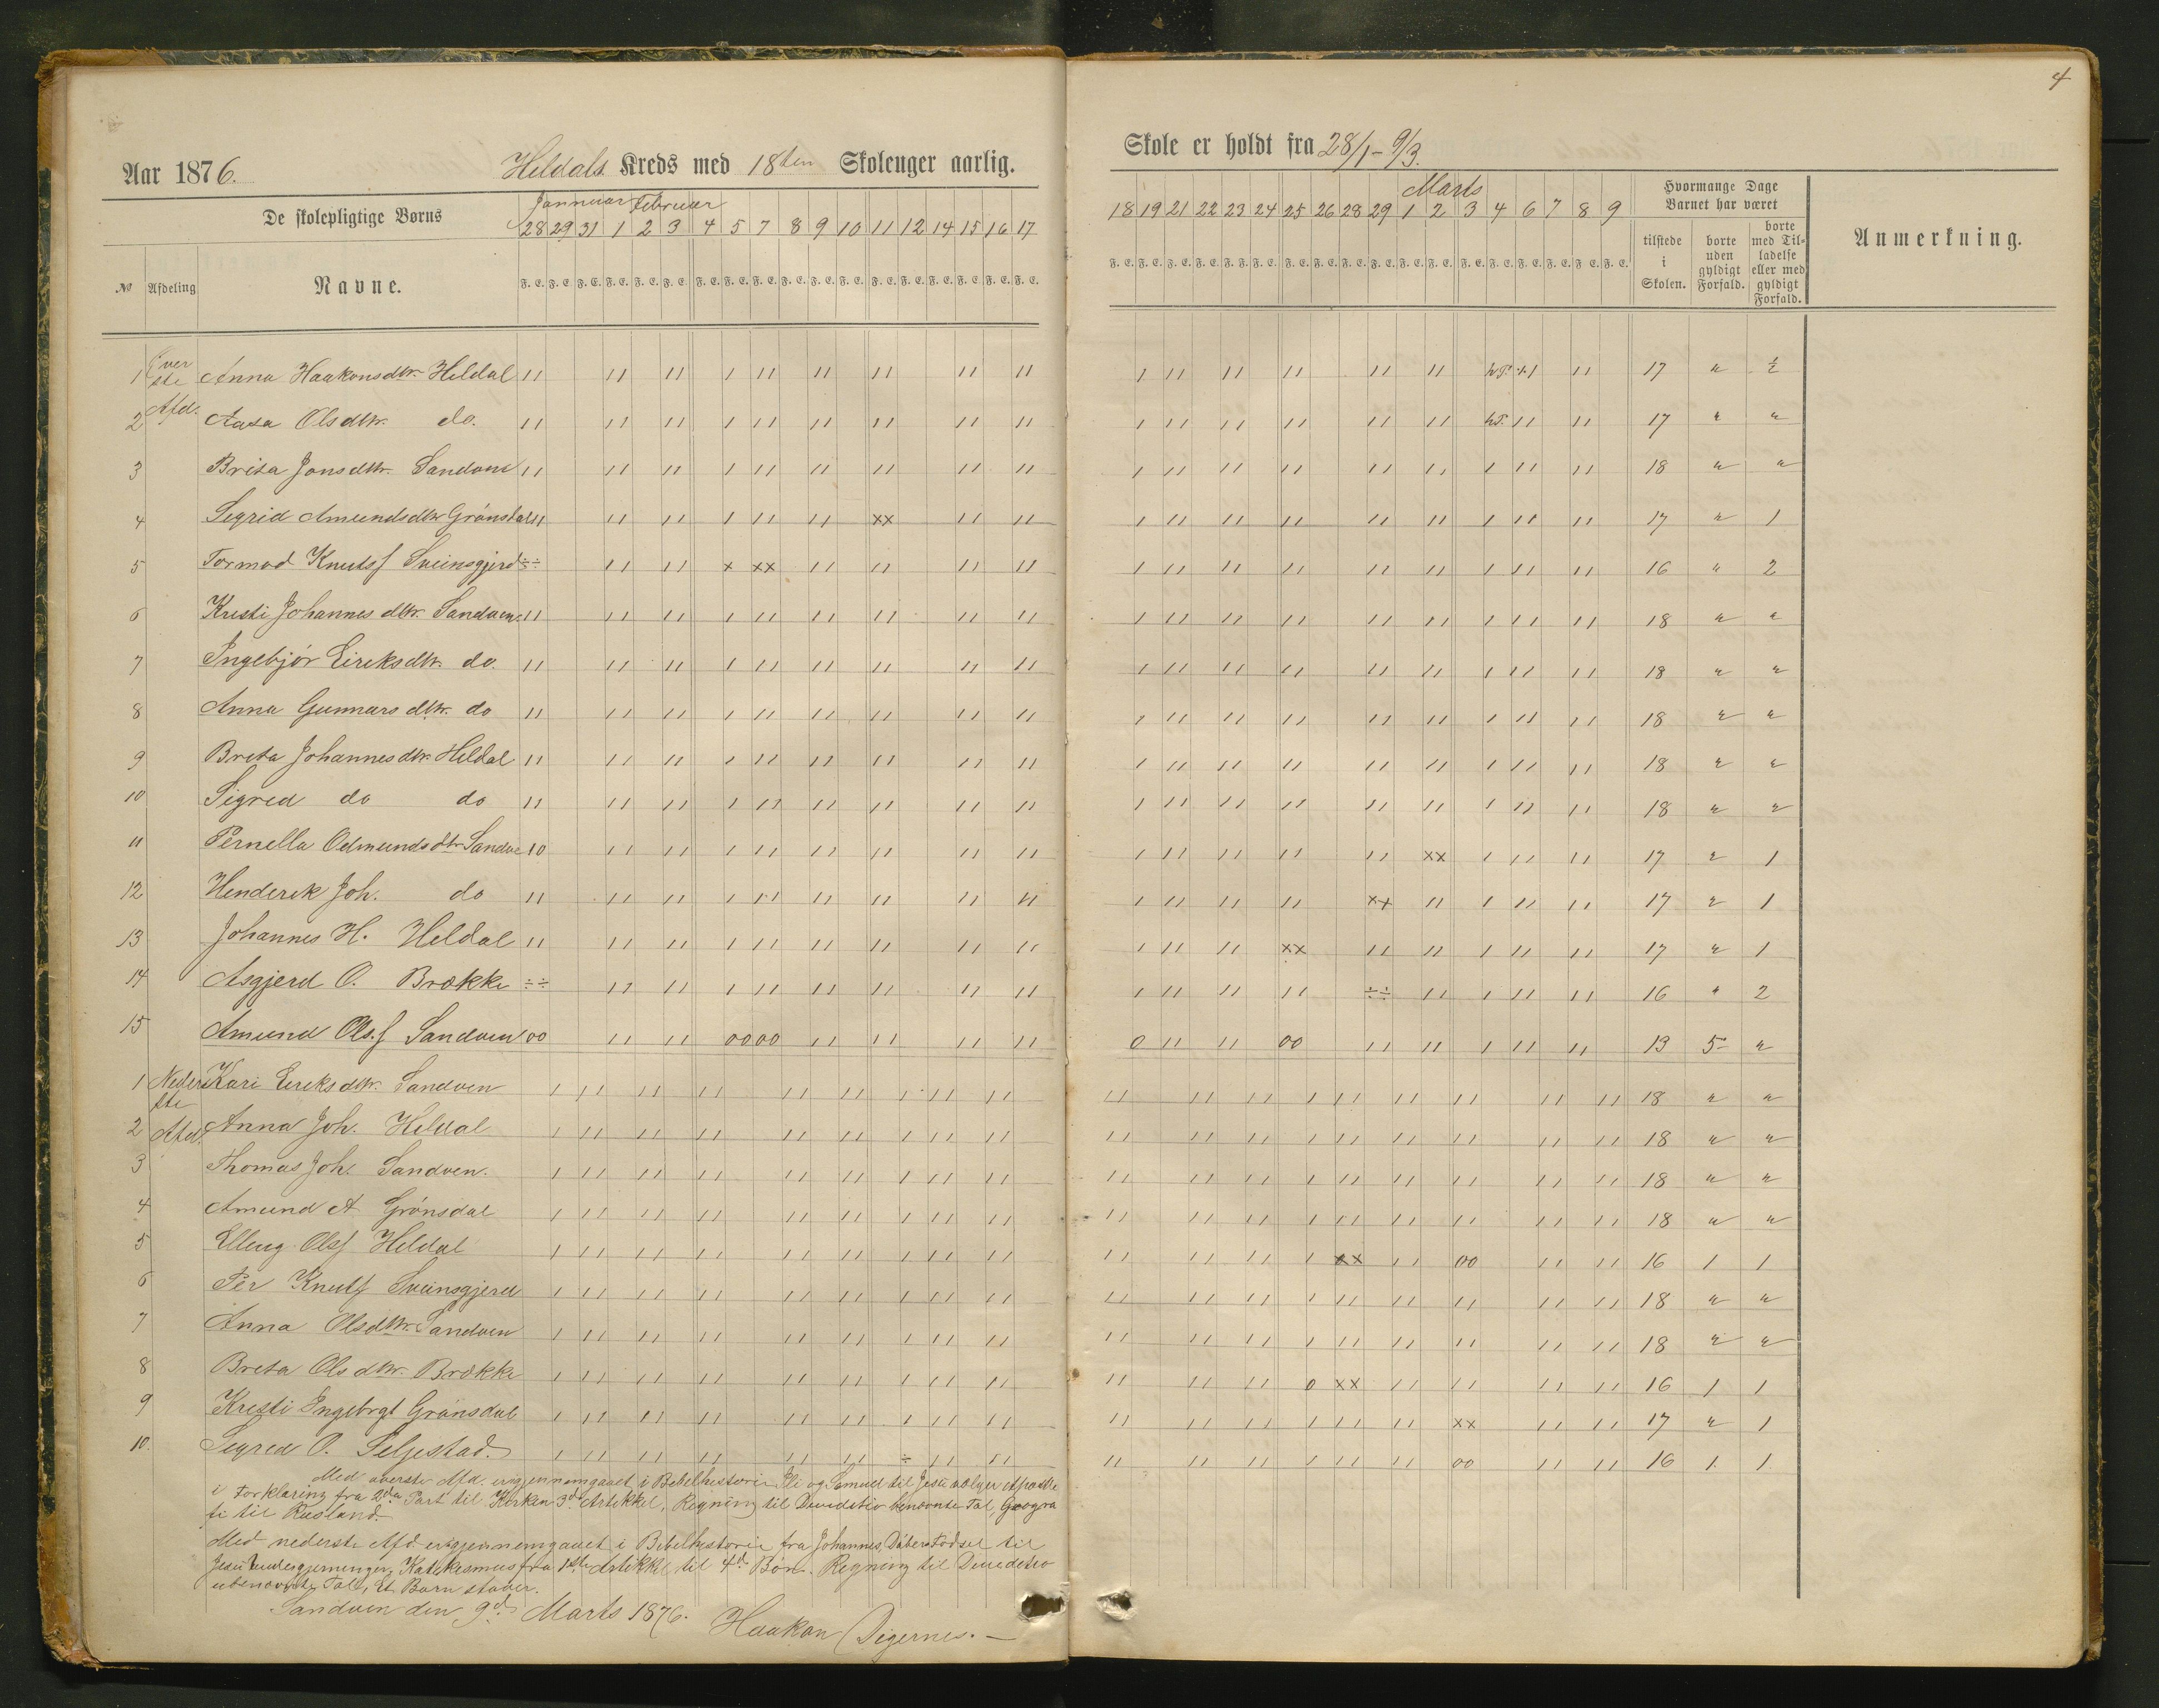 4
Aar 1876.
Heldals Kreds med 18ten Skoleuger aarlig.
Skole er holdt fra 28/1 - 9/3.
De skolepligtige Børns
Januar Februar
28 29 31 1 2 3 4 5 7 8 9 10 11 12 14 15 16 17
Marts
18 19 21 22 23 24 25 26 28 29 1 2 3 4 6 7 8 9
Hvormange Dage
Barnet har været
№ Afdeling Navne.
F. E. F. E. F. E. F. E. F. E. F. E. F. E. F. E. F. E. F. E. F. E. F. E. F. E. F. E. F. E. F. E. F. E. F. E.
tilstede i Skolen.
borte uden gyldigt Forfald.
borte med Tilladelse eller med gyldigt Forfald.
Anmerkning.
1 Øverste Anna Haakonsdtr. Heldal 17 " ½
2 Afd. Aasa Olsdtr. do. 17 " "
3 Brita Jonsdtr. Sandven 18 " "
4 Sigrid Amundsdtr Grónsdal 17 " 1
5 Tormod Knuts. Sveinsgjerd 16 " 2
6 Kristi Johannesdtr. Sandven 18 " "
7 Ingebjór Eireksdtr. do. 18 " "
8 Anna Gunnarsdtr. do 18 " "
9 Breta Johannesdtr. Heldal 18 " "
10 Sigred do do 18 " "
11 Pernella Odmundsdtr Sandve 17 " 1
12 Henderek Joh. do 17 " 1
13 Johannes H. Heldal 17 " 1
14 Asgjerd O. Brække 16 " 2
15 Amund Ols. Sandven 13 5 "
1 Nederste Kari Eireksdtr. Sandven 18 " "
2 Afd. Anna Joh. Heldal 18 " "
3 Thomas Joh. Sandven. 18 " "
4 Amund A Grónsdal 18 " "
5 Elling Ols. Heldal 16 1 1
6 Per Knuts. Sveinsgjerd 18 " "
7 Anna Olsdtr. Sandven 18 " "
8 Breta Olsdtr. Brække 16 1 1
9 Kresti Ingebrgt Grónsdal 17 " 1
10 Sigred O. Seljestad. 16 1 1
Med øverste Afd. ergjennemgaaet i Bibelhistorie Eli og Samuel til Jesu vælger Apostle
i Forklaring fra 2den Part til Kirken 3de Artikkel, Regning til Devidetio benævnte Tal, Geogra
fi til Rusland.
Med nederste Afd ergjennemgaaet i Bibelhistorie fra Johannes Dóbers Fødsel til
Jesu Undergjerninger, Katekismus fra 1ste Artikkel til 4de Bón. Regning til Devidetio
ubenævnte Tal, Et Barn staver.
Sandven den 9de Marts 1876. Haakon Digernes.